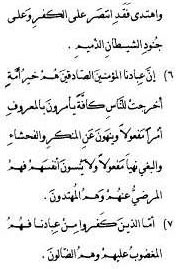 واهتدى فقد انتصر على الكفر وعلى
جنود الشيطان الذميم.
(٦) إن عبادنا المؤمنين الصادقين هم خير أمة
أخرجت للناس كافة يأمرون بالمعروف
أمرا مفعولا وينهون عن المنكر والفحشاء
والبغي نهيا مفعولا ولا ينسون أنفسهم فهم
المرضي عنهم وهم المهتدون.
(٧) أما الذين كفروا من عبادنا فهم
المغضوب عليهم وهم الضالون.